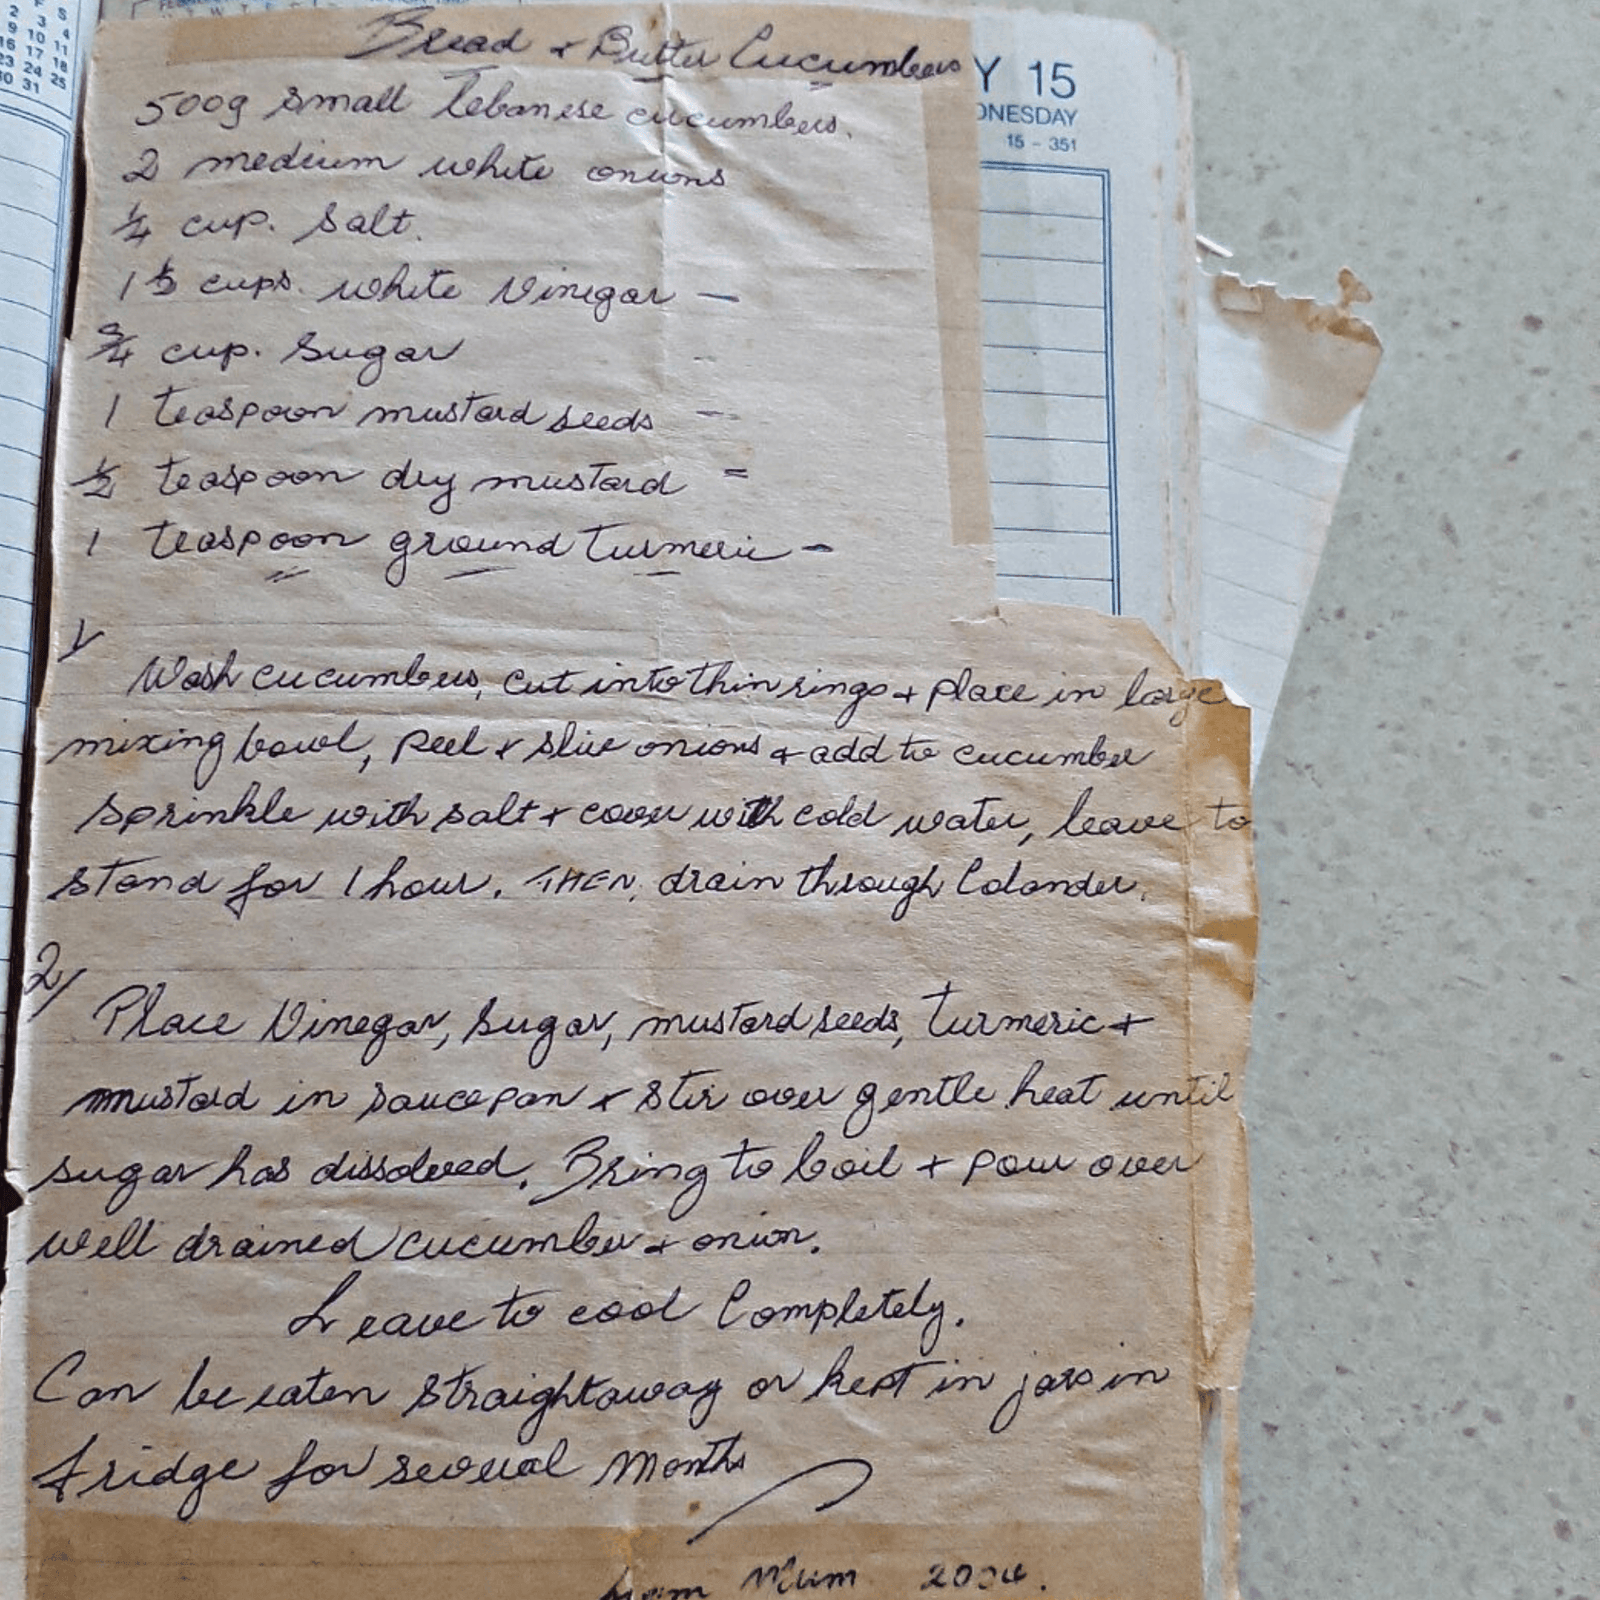 Bread + Butter Cucumbers
500g small Lebanese cucumbers.
2 medium white onions
1/4 cup. Salt.
cups. white Vinegar –
3/4 cup. Sugar
1 teaspoon mustard seeds –
1/2 teaspoon dry mustard =
1 teaspoon ground turmeric –
1/
Wash cucumbers, cut into thin rings + place in large
mixing bowl, peel + slice onions + add to cucumber
sprinkle with salt + cover with cold water, leave to
stand for 1 hour. THEN, drain through Colander.
2/
Place Vinegar, Sugar, mustard seeds, turmeric +
mustard in saucepan + stir over gentle heat until
sugar has dissolved. Bring to boil + pour over
well drained cucumber + onion.
Leave to cool Completely.
Can be eaten straightaway or kept in jars in
fridge for several months
Mum
Y 15
DNESDAY
15 - 351
F S
2 3 4
9 10 11
16 17 18
23 24 25
30 31